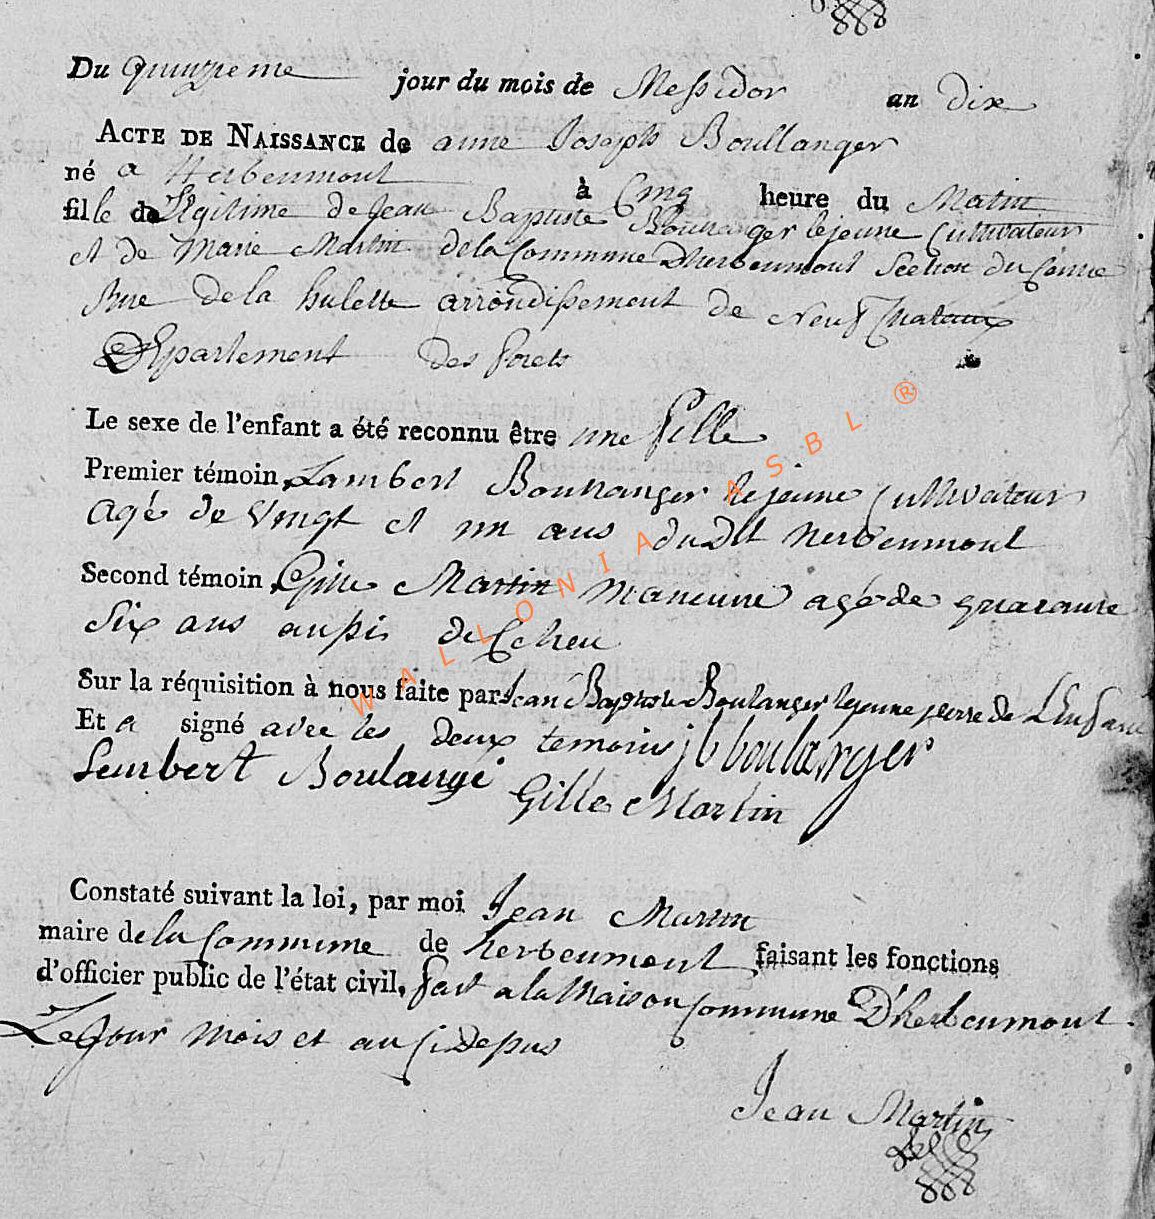 Du quinzieme jour du mois de Messidor an dix
ACTE DE NAISSANCE de anne Joseph Boullanger
né a Herbeumont à Cinq heure du Matin
fille de Legitime de Jean Baptiste Boullanger lejeune Cultivateur
et de Marie Martin de la Commune Dherbeumont Section du Centre
Rue de la hulette arrondissement de Neuf Chateaux
Departement des forets
Le sexe de l'enfant a été reconnu être une fille
Premier témoin, Lambert Boullanger lejeune Cultivateur
agé de vingt et un ans dudit herbeumont
Second témoin, Gille Martin maneuvre agé de quarante
Six ans aussi de Ce lieu
Sur la réquisition à nous faite par Jean Baptiste Boulanger lejeune perre de L'enfant
Et a signé avec les deux temoins jb boulanger
Lambert Boulangé
Gille Martin
Constaté suivant la loi, par moi Jean Martin
maire de la Commune de herbeumont faisant les fonctions
d'officier public de l'état civil, fait a la Maison Commune D'herbeumont
Le Jour mois et an Ci
Jean Martin
WALLONIA ASBL ®